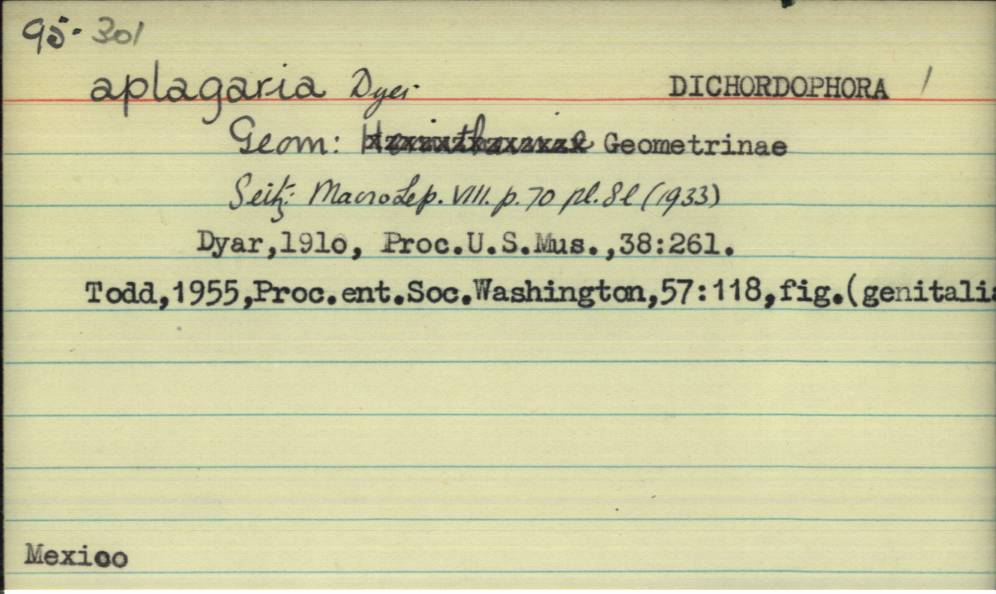 95-301
aplagaria Dyar DICHORDOPHORA /
Geom: Geometrinae
Seitz: MacroLep. VIII. p. 70 pl. 8l (1933)
Dyar,191o, Proc.U.S.Mus.,38:261.
Todd,1955,Proc.ent.Soc.Washington,57:118,fig.(genitalia
Mexico